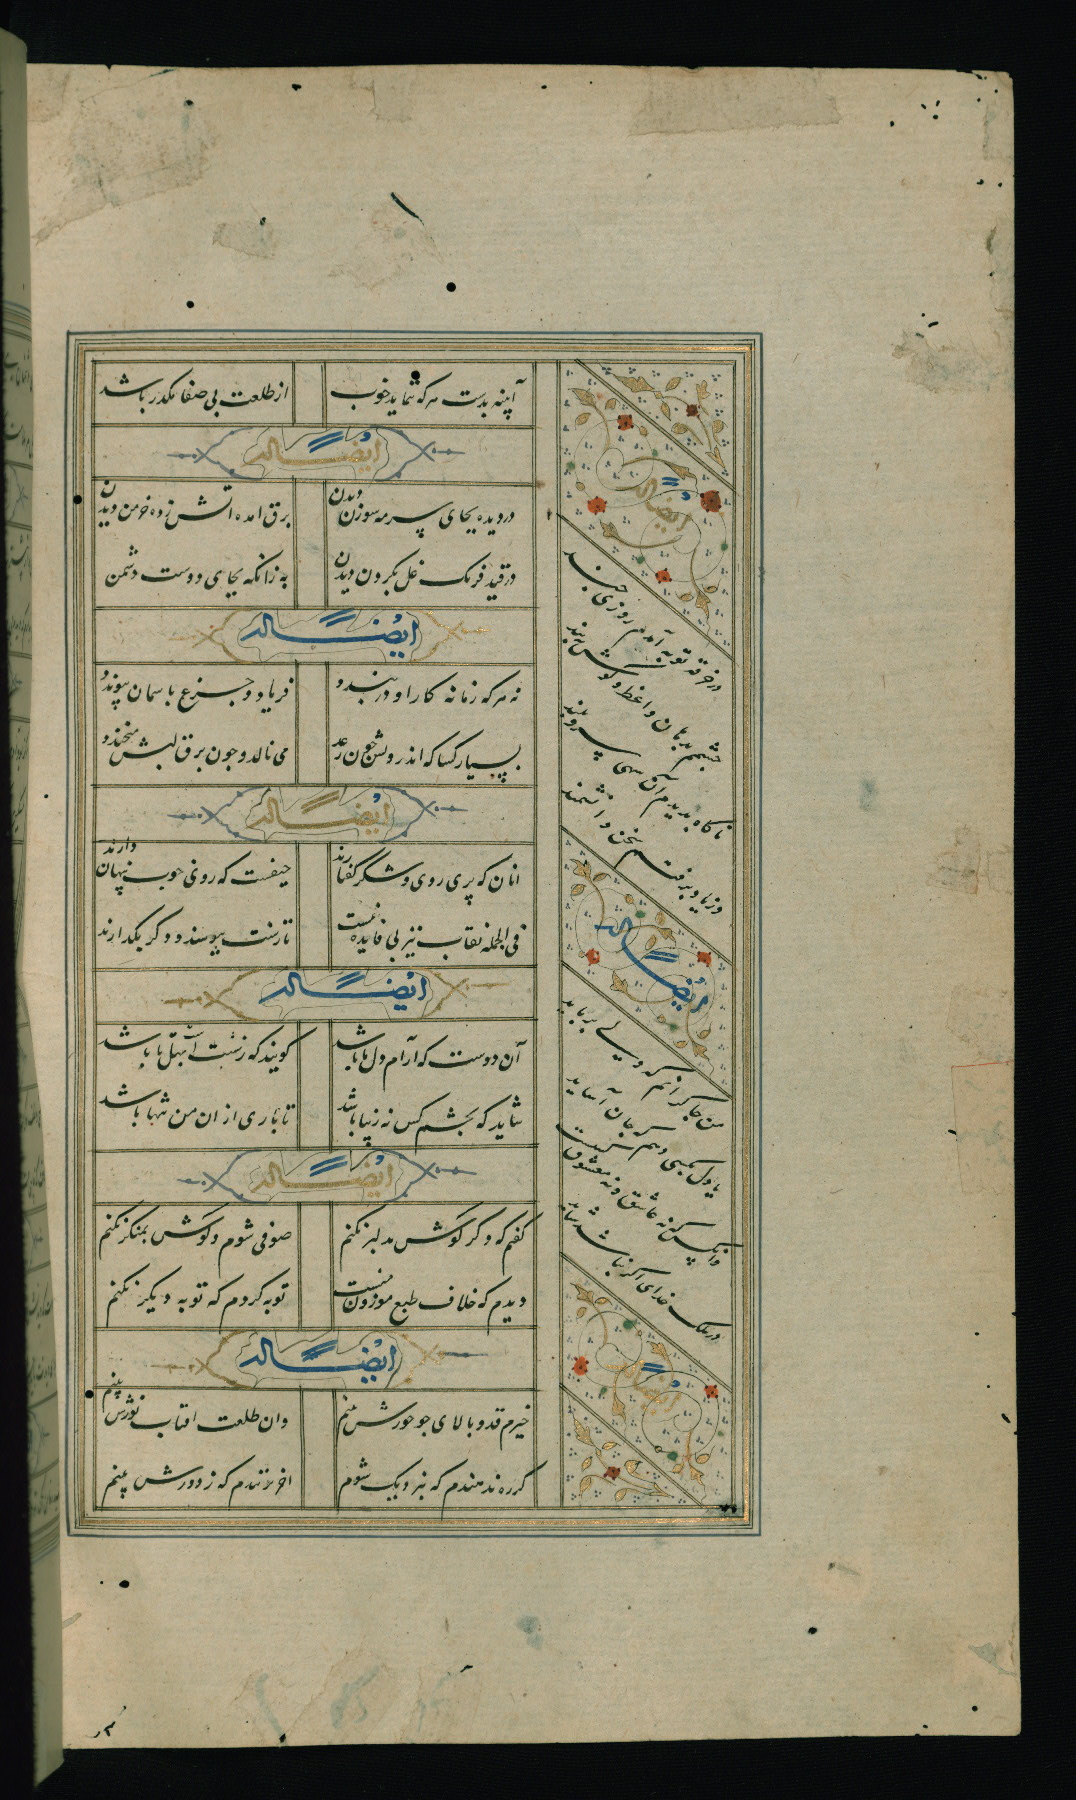 آینه بدست هر که ننماید خوب
از طلعت بی صفا مکدر باشد
ایضاً له
در دیده بجای سرمه سوزن دیدن
برق آمده آتش زده خرمن دیدن
در قید فرنگ غل بگردن دیدن
به زانکه بجای دوست دشمن
ایضاً له
نه هر که زمانه کار او در بندد
فریاد و جزع با سمان پیوندد
بسیار کسا که اندرونش چون رعد
می نالد و چون برق لبش میخندد
ایضاً له
انان که پری روی و شکر گفتارند
حیفست که روی خوب پنهان دارند
فی الجمله نقاب نیز بی فایده نیست
تا زشت بپوسند و دگر بگذارند
ایضاً له
آن دوست که آرام دل ما باشد
گویند که زشتست بهل تا باشد
شاید که بچشم کس نه زیبا باشد
تا باری از ان من تنها باشد
ایضاً له
گفتم که دگر گوش بدلبر نکنم
صوفی شوم و گوش بمنکر نکنم
دیدم که خلاف طبع موزون منست
توبه کردم که توبه دیگر نکنم
ایضاً له
خیزم قد و بالای چو حورش بینم
وان طلعت افتاب نورش بینم
گر ره ندهندم که بنزدیک شوم
اخر نزنندم که ز دورش بینم
ایضاً له
در خرقه توبه آمدم روزی چند
چشمم بدهان واعظ و گوش بپند
ناگاه بدیدم آن سهی سرو بلند
وز یاد برفتم سخن دانشمند
ایضاً له
من چاکر انم که دلی برباید
یا دل بکسی دهم که جان آساید
وانکس که نه عاشق و نه معشوق کسیست
در ملک خدای اگر نباشد شاید
ایضاً له